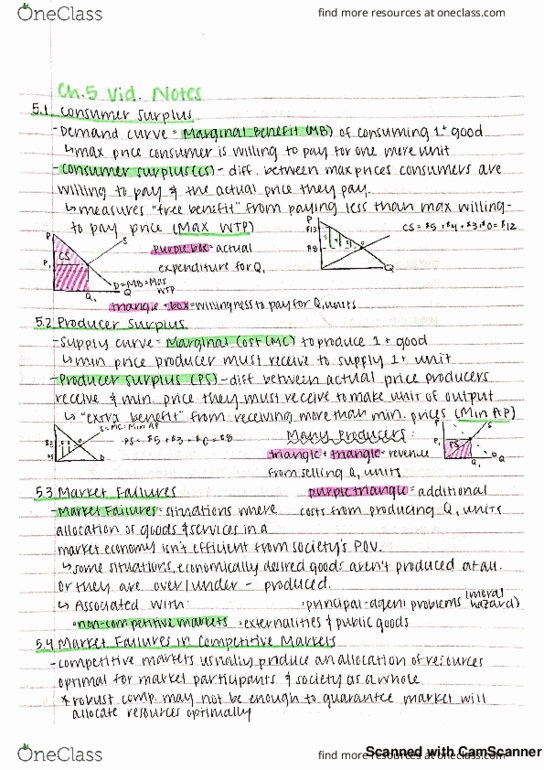 OneClass
find more resources at oneclass.com
Ch.5 Vid. Notes
5.1 Consumer Surplus
-Demand curve = Marginal Benefit (MB) of consuming 1+ good
↳max price consumer is willing to pay for one more unit
-Consumer surplus (CS) - diff. between max prices consumers are
willing to pay & the actual price they pay.
↳measures "free benefit" from paying less than max willing-
to pay price (Max WTP)
purple box = actual
expenditure for Q₁
P
P₁
CS
S
D=MB=Max
WTP
Q₁
Q
P
CS = $5 + $4 + $3 + $0 = $12
Q
triangle + box = willingness to pay for Q₁ units
5.2 Producer Surplus
-Supply curve = Marginal Cost (MC) to produce 1+ good
↳min price producer must receive to supply 1+ unit
-Producer surplus (PS) - diff between actual price producers
receive & min. price they must receive to make unit of output
↳ "extra benefit" from receiving more than min. prices (Min AP)
S=MC=Min AP
PS = $5 + $3 + $0 = $8
D
Many Producers:
triangle + triangle = revenue
from selling Q₁ units
purple triangle = additional
costs from producing Q₁ units
P
P₁
PS
S
D
Q₁
Q
5.3 Market Failures
-Market Failures: situations where
allocation of goods & services in a
market economy isn't efficient from society's POV.
↳some situations, economically desired goods aren't produced at all.
Or they are over/under - produced.
↳ Associated with:
·principal-agent problems (moral hazard)
·non-competitive markets
·externalities & public goods
5.4 Market Failures in Competitive Markets
-competitive markets usually produce an allocation of resources
optimal for market participants & society as a whole
* robust comp. may not be enough to guarantee market will
allocate resources optimally
OneClass
find more resources at oneclass.com
Scanned with CamScanner